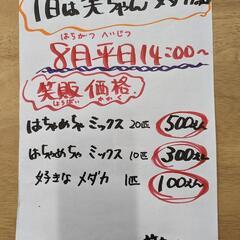 1日は笑ちゃんメダカ
はちがつ へいじつ
8月平日14:00〜
笑販価格
はちゃめちゃミックス 20匹 500えん
はちゃめちゃミックス 10匹 300えん
好きなメダカ 1匹 100えん